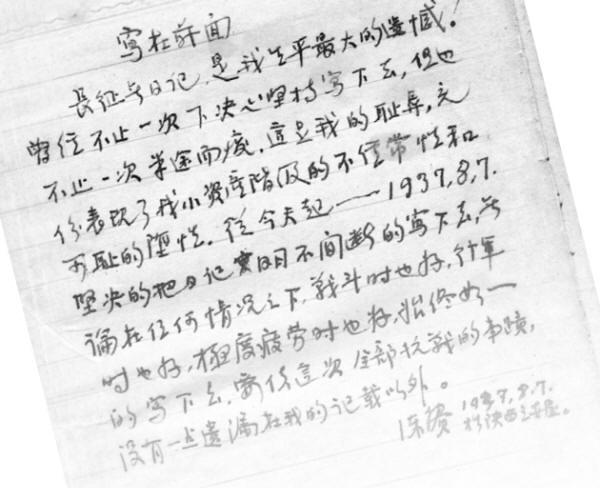 写在前面
長征无日记,是我生平最大的遗憾!
曾經不止一次下决心坚持写下去,但也
不止一次半途而废。这是我的耻辱,充
份表现了我小资产階级的不经常性和
可耻的堕性。從今天起——1937.8.7.
坚决的把日记實日不间断的写下去,无
論在任何情况之下,戰斗时也好,行军
时也好,極度疲劳时也好,始终如一
的写下去,要使這次全部抗战的事蹟,
没有一点遗漏在我的记载以外。
1937.8.7.
於陕西